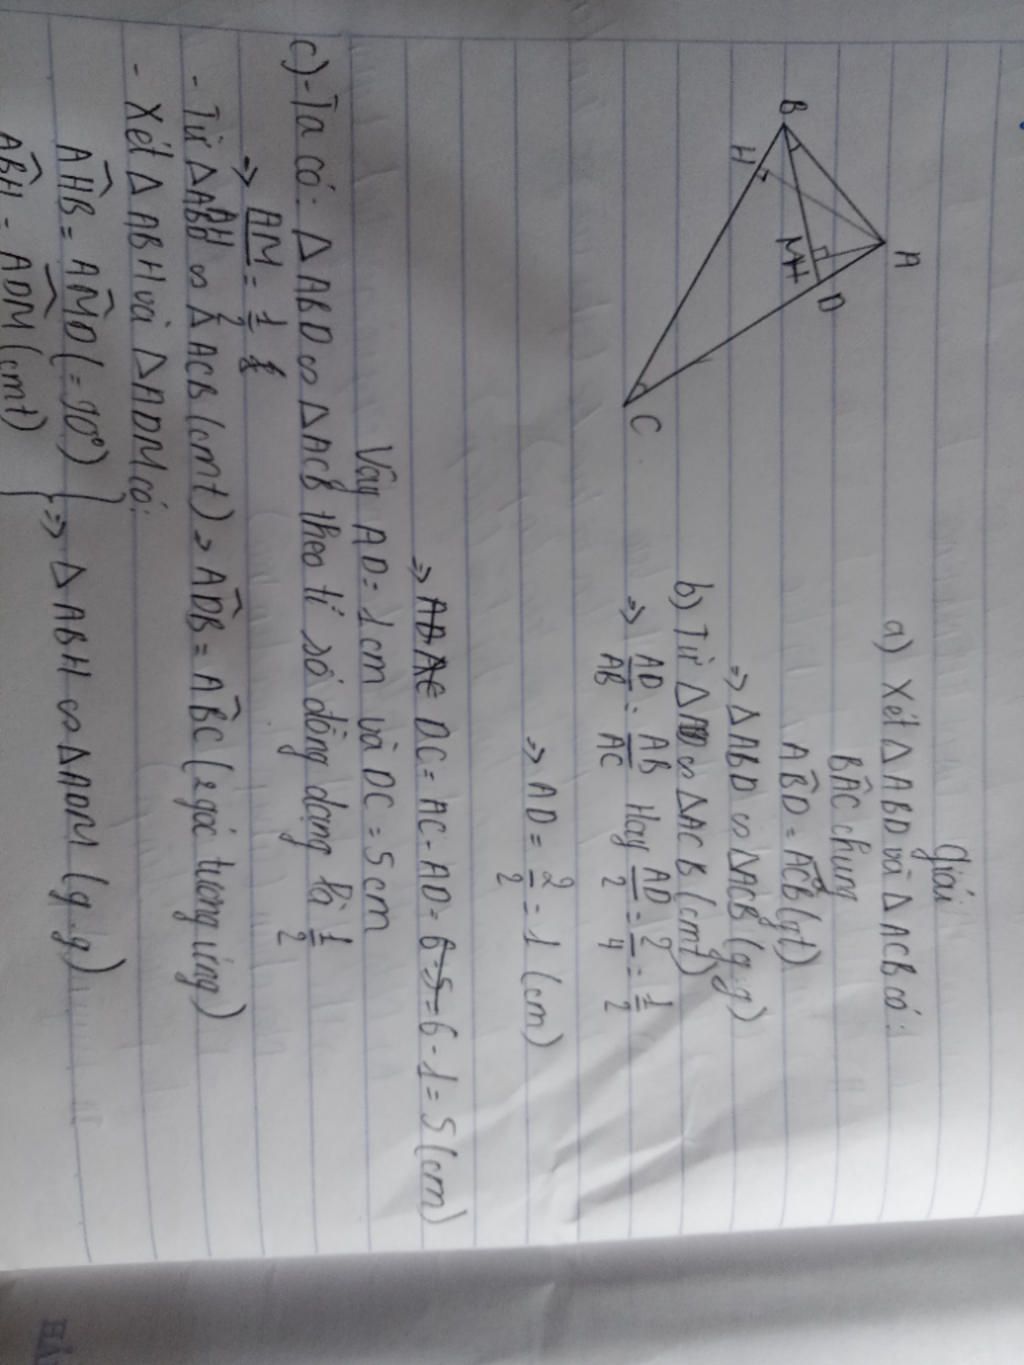 Giải
A
B
H
M
D
C
a) Xét Δ ABD và Δ ACB có:
BÂC chung
ABD = ACB (gt)
=> Δ ABD ∽ Δ ACB (g.g)
b) Từ Δ ABD ∽ Δ ACB (cmt)
=> AD/AB = AB/AC Hay AD/2 = 2/4 = 1/2
=> AD = 2/2 = 1 (cm)
=> DC = AC - AD = 6 - 1 = 5 (cm)
Vậy AD = 1 cm và DC = 5 cm
c) - Ta có: Δ ABD ∽ Δ ACB theo tỉ số đồng dạng là 1/2
=> AM/AH = 1/2
- Từ Δ ABD ∽ Δ ACB (cmt) => ADB = ABC (2 góc tương ứng)
- Xét Δ ABH và Δ ADM có:
AHB = AMD (= 90°)
ABH = ADM (cmt)
} => Δ ABH ∽ Δ ADM (g.g)